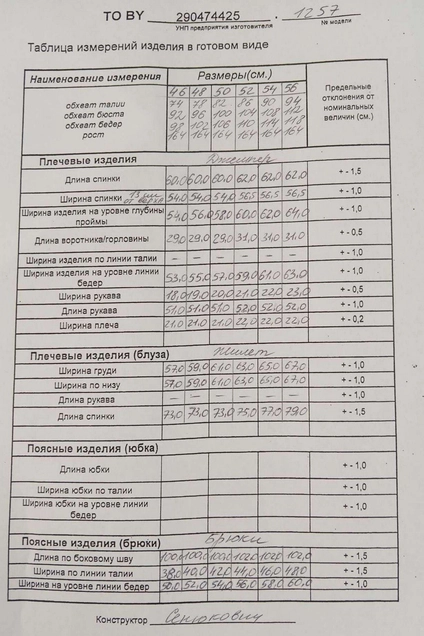 ТО BY 290474425 . 1257
УНП предприятия изготовителя № модели
Таблица измерений изделия в готовом виде
Наименование измерения Размеры(см.) Предельные отклонения от номинальных величин (см.)
46 48 50 52 54 56
обхват талии 74 78 82 86 90 94
обхват бюста 92 96 100 104 108 112
обхват бедер 98 102 106 110 114 118
рост 164 164 164 164 164 164
Плечевые изделия Джемпер
Длина спинки 60,0 60,0 60,0 62,0 62,0 62,0 + - 1,5
Ширина спинки 13 см от верха 54,0 54,0 54,0 56,5 56,5 56,5 + - 1,0
Ширина изделия на уровне глубины проймы 54,0 56,0 58,0 60,0 62,0 64,0 + - 1,0
Длина воротника/горловины 29,0 29,0 29,0 31,0 31,0 31,0 + - 0,5
Ширина изделия по линии талии – – – – – – + - 1,0
Ширина изделия на уровне линии бедер 53,0 55,0 57,0 59,0 61,0 63,0 + - 1,0
Ширина рукава 18,0 19,0 20,0 21,0 22,0 23,0 + - 0,5
Длина рукава 51,0 51,0 51,0 52,0 52,0 52,0 + - 1,0
Ширина плеча 21,0 21,0 21,0 22,0 22,0 22,0 + - 0,2
Плечевые изделия (блуза) Жилет
Ширина груди 57,0 59,0 61,0 63,0 65,0 67,0 + - 1,0
Ширина по низу 57,0 59,0 61,0 63,0 65,0 67,0 + - 1,0
Длина рукава – – – – – – + - 1,0
Длина спинки 73,0 73,0 73,0 75,0 77,0 79,0 + - 1,5
Поясные изделия (юбка)
Длина юбки + - 1,0
Ширина юбки по талии + - 1,0
Ширина юбки на уровне линии бедер + - 1,0
Поясные изделия (брюки) Брюки
Длина по боковому шву 100,0 100,0 100,0 102,0 102,0 102,0 + - 1,5
Ширина по линии талии 38,0 40,0 42,0 44,0 46,0 48,0 + - 1,5
Ширина на уровне линии бедер 50,0 52,0 54,0 56,0 58,0 60,0 + - 1,0
Конструктор Сенюкович